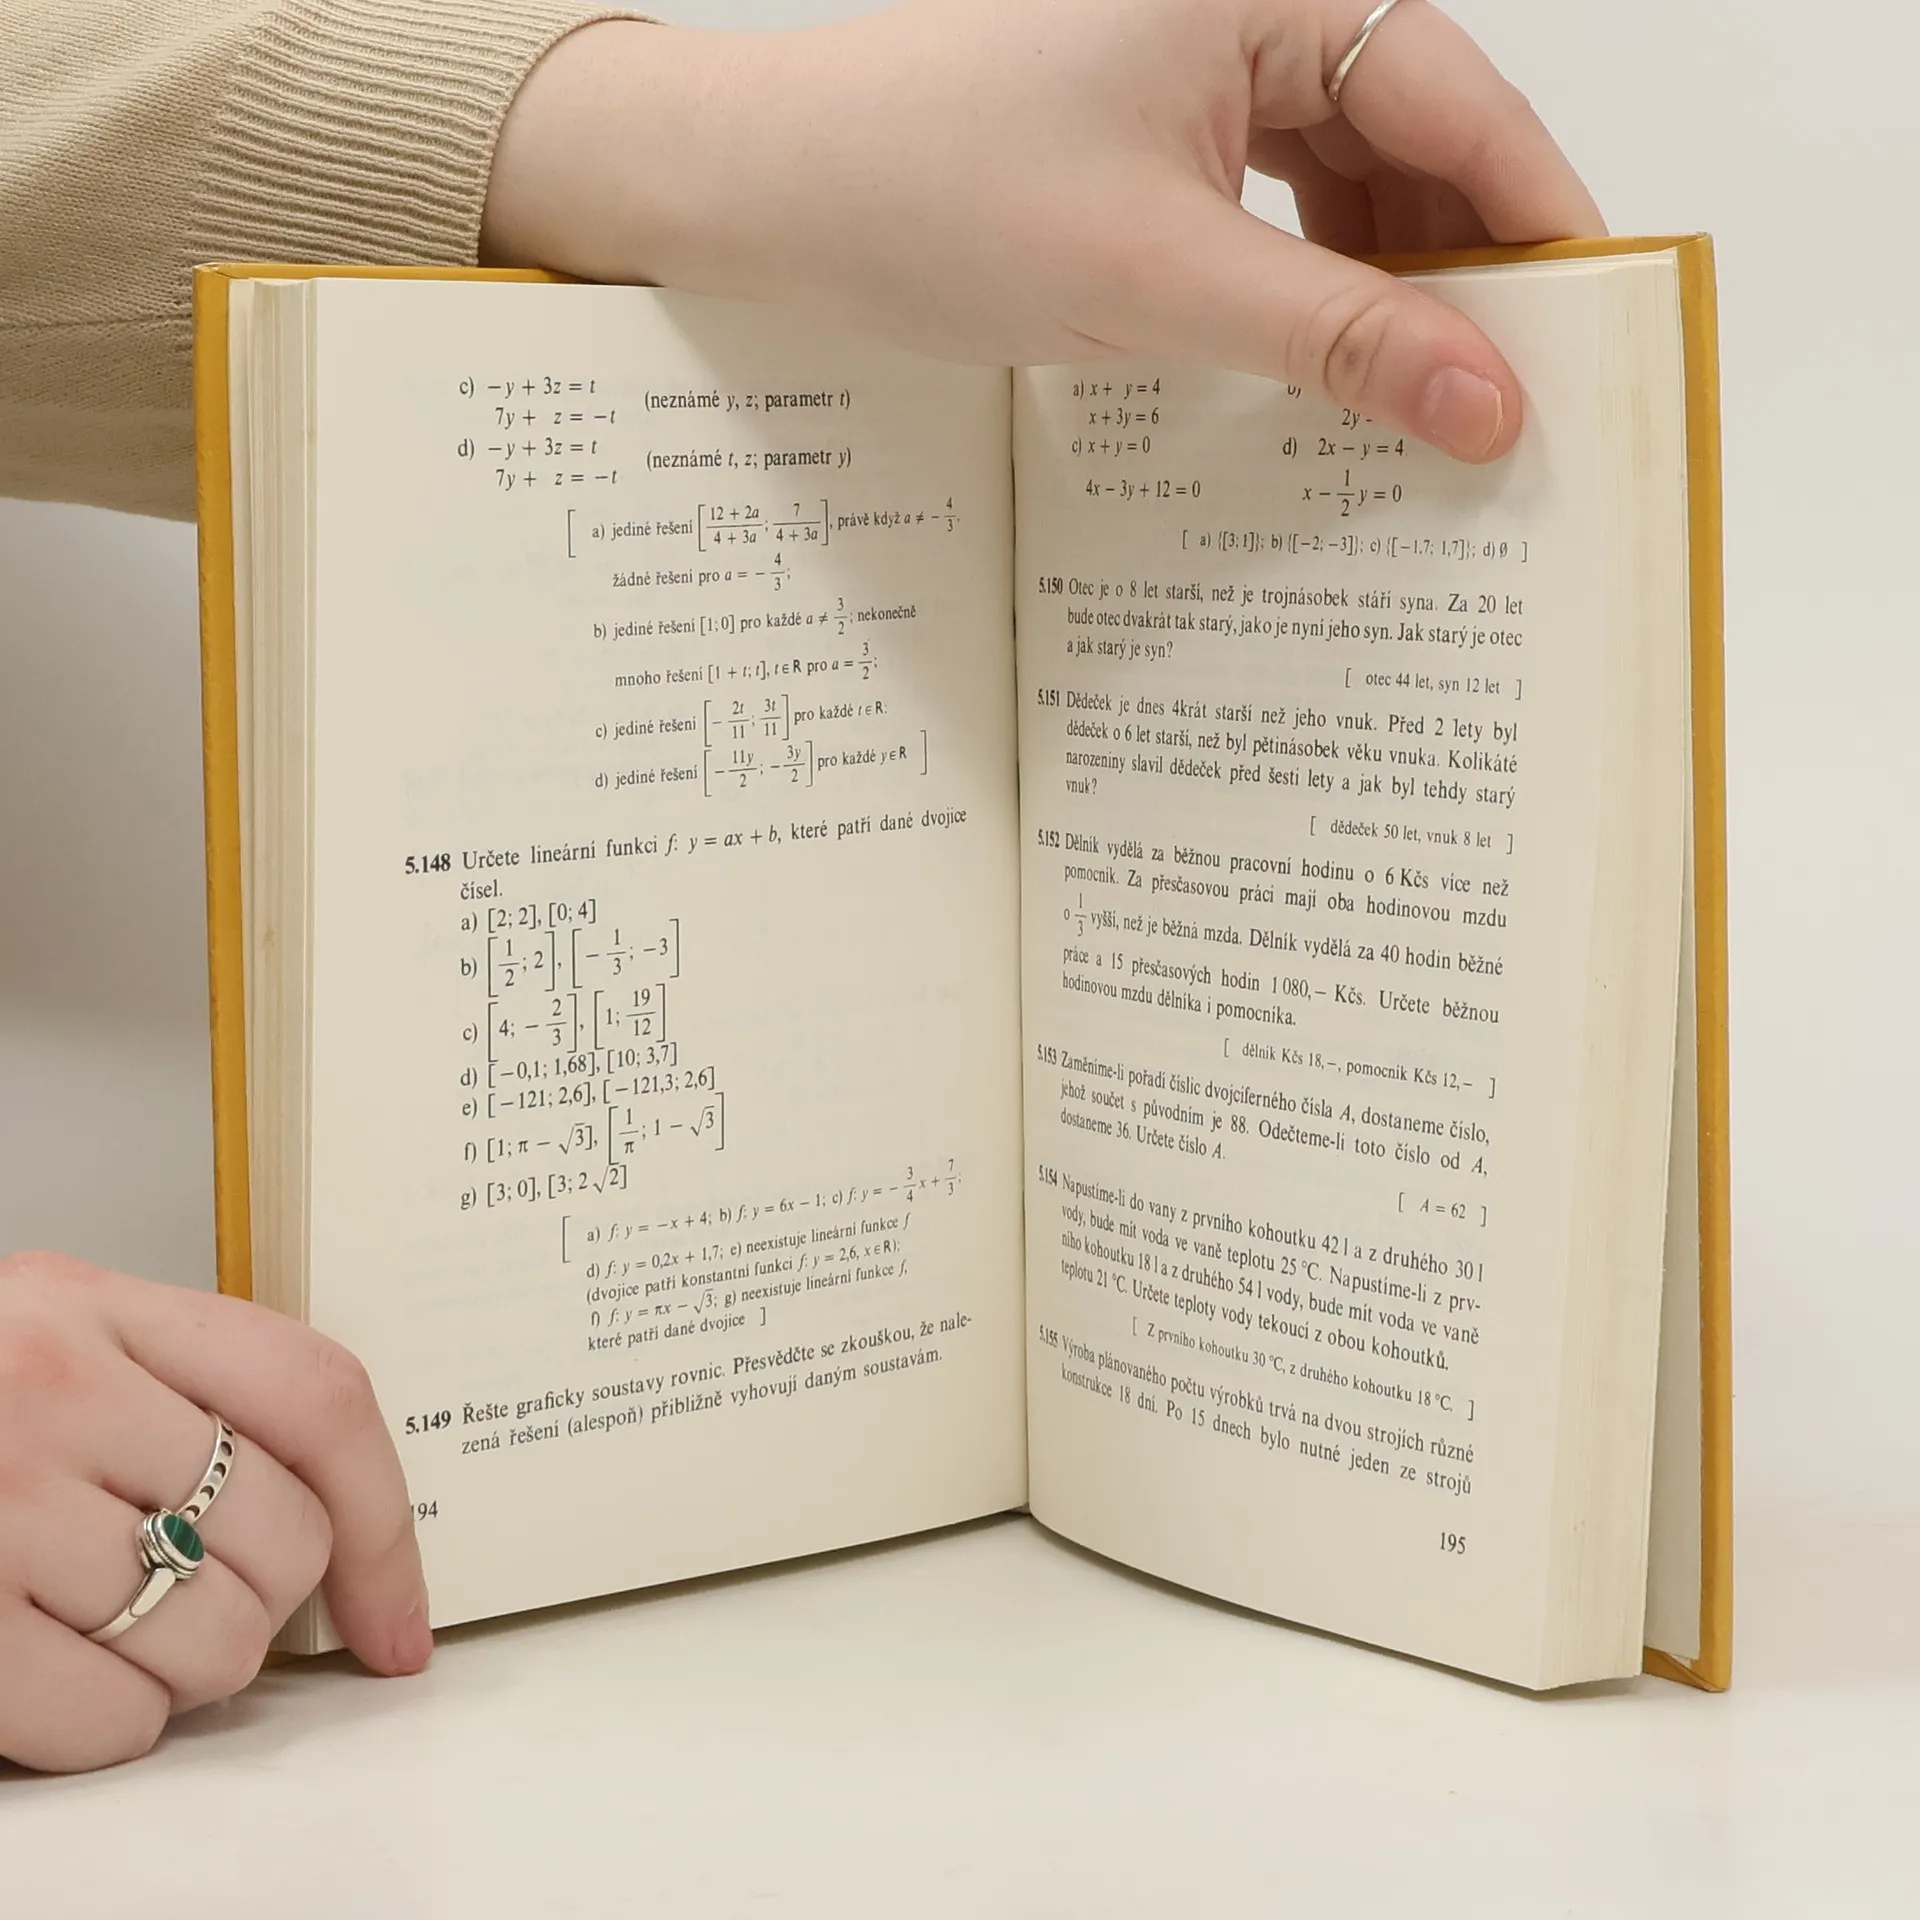 c) −y + 3z = t
(neznámé y, z; parametr t)
7y + z = −t
d) −y + 3z = t
(neznámé t, z; parametr y)
7y + z = −t
[ a) jediné řešení [(12 + 2a)/(4 + 3a); 7/(4 + 3a)], právě když a ≠ −4/3,
žádné řešení pro a = −4/3;
b) jediné řešení [1; 0] pro každé a ≠ 3/2; nekonečně
mnoho řešení [1 + t; t], t∈R pro a = 3/2;
c) jediné řešení [−2t/11; 3t/11] pro každé t∈R:
d) jediné řešení [−11y/2; −3y/2] pro každé y∈R ]
5.148 Určete lineární funkci f: y = ax + b, které patří dané dvojice
čísel.
a) [2; 2], [0; 4]
b) [1/2; 2], [−1/3; −3]
c) [4; −2/3], [1; 19/12]
d) [−0,1; 1,68], [10; 3,7]
e) [−121; 2,6], [−121,3; 2,6]
f) [1; π − √3], [1/π; 1 − √3]
g) [3; 0], [3; 2√2]
[ a) f: y = −x + 4; b) f: y = 6x − 1; c) f: y = −3/4x + 7/3;
d) f: y = 0,2x + 1,7; e) neexistuje lineární funkce f
(dvojice patří konstantní funkci f: y = 2,6, x∈R);
f) f: y = πx − √3; g) neexistuje lineární funkce f,
které patří dané dvojice ]
5.149 Řešte graficky soustavy rovnic. Přesvědčte se zkouškou, že nale-
zená řešení (alespoň) přibližně vyhovují daným soustavám.
194
a) x + y = 4
x + 3y = 6
2y -
c) x + y = 0
d) 2x − y = 4
4x − 3y + 12 = 0
x − 1/2y = 0
[ a) {[3; 1]}; b) {[−2; −3]}; c) {[−1,7; 1,7]}; d) ∅ ]
5.150 Otec je o 8 let starší, než je trojnásobek stáří syna. Za 20 let
bude otec dvakrát tak starý, jako je nyní jeho syn. Jak starý je otec
a jak starý je syn?
[ otec 44 let, syn 12 let ]
5.151 Dědeček je dnes 4krát starší než jeho vnuk. Před 2 lety byl
dědeček o 6 let starší, než byl pětinásobek věku vnuka. Kolikáté
narozeniny slavil dědeček před šesti lety a jak byl tehdy starý
vnuk?
[ dědeček 50 let, vnuk 8 let ]
5.152 Dělník vydělá za běžnou pracovní hodinu o 6 Kčs více než
pomocník. Za přesčasovou práci mají oba hodinovou mzdu
o 1/3 vyšší, než je běžná mzda. Dělník vydělá za 40 hodin běžné
práce a 15 přesčasových hodin 1 080,– Kčs. Určete běžnou
hodinovou mzdu dělníka i pomocníka.
[ dělník Kčs 18,–, pomocník Kčs 12,– ]
5.153 Zaměníme-li pořadí číslic dvojciferného čísla A, dostaneme číslo,
jehož součet s původním je 88. Odečteme-li toto číslo od A,
dostaneme 36. Určete číslo A.
[ A = 62 ]
5.154 Napustíme-li do vany z prvního kohoutku 42 l a z druhého 30 l
vody, bude mít voda ve vaně teplotu 25 °C. Napustíme-li z prv-
ního kohoutku 18 l a z druhého 54 l vody, bude mít voda ve vaně
teplotu 21 °C. Určete teploty vody tekoucí z obou kohoutků.
[ Z prvního kohoutku 30 °C, z druhého kohoutku 18 °C. ]
5.155 Výroba plánovaného počtu výrobků trvá na dvou strojích různé
konstrukce 18 dní. Po 15 dnech bylo nutné jeden ze strojů
195